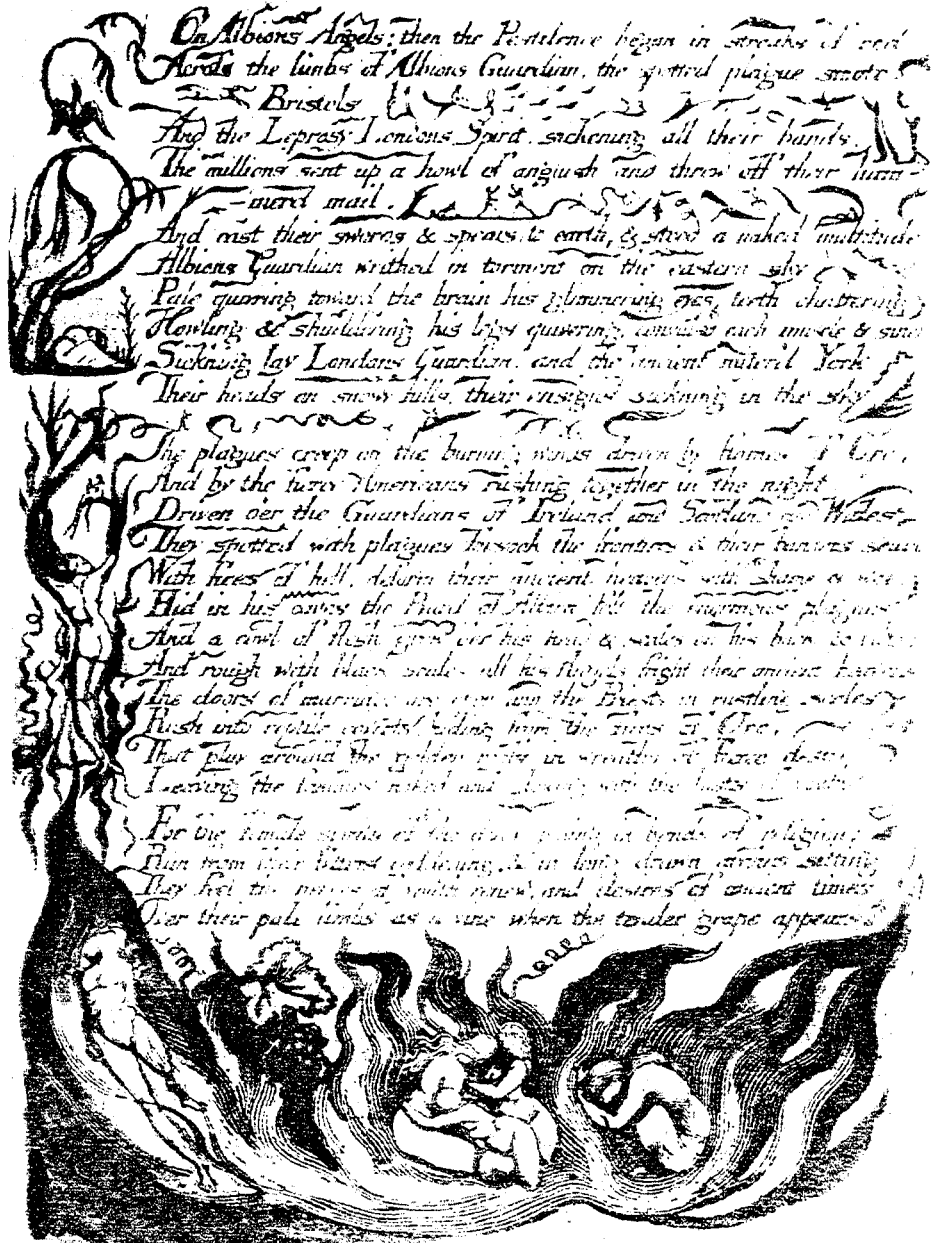 On Albions Angels; then the Pestilence began in streaks of red
Across the limbs of Albions Guardian, the spotted plague smote
Bristols
And the Leprosy Londons Spirit, sickening all their bands:
The millions sent up a howl of anguish and threw off their ham-
-merd mail,
And cast their swords & spears to earth, & stood a naked multitude
Albions Guardian writhed in torment on the eastern sky
Pale quivring toward the brain his glimmering eyes, teeth chattering
Howling & shuddering his legs quivering; each muscle & sinew
Sickning lay Londons Guardian, and the ancient miterd York
Their heads on snowy hills, their ensigns sickning in the sky
The plagues creep on the burning winds driven by flames of Orc,
And by the fierce Americans rushing together in the night
Driven o'er the Guardians of Ireland and Scotland and Wales
They spotted with plagues forsook the frontiers & their banners seard
With fires of hell, deform their ancient heavens with shame & woe.
Hid in his caves the Bard of Albion felt the enormous plagues.
And a cowl of flesh grew o'er his head & scales on his back & ribs
And rough with black scales all his Angels fright their ancient heavens
The doors of marriage are open and the Priests in rustling scales
Rush into reptile coverts, hiding from the fires of Orc,
That play around the golden roofs in wreaths of fierce desire,
Leaving the females naked and glowing with the lusts of youth
For the female spirits of the dead pining in bonds of religion;
Run from their fetters reddening, & in long drawn arches sitting:
They feel the nerves of youth renew, and desires of ancient times,
Over their pale limbs as a vine when the tender grape appears